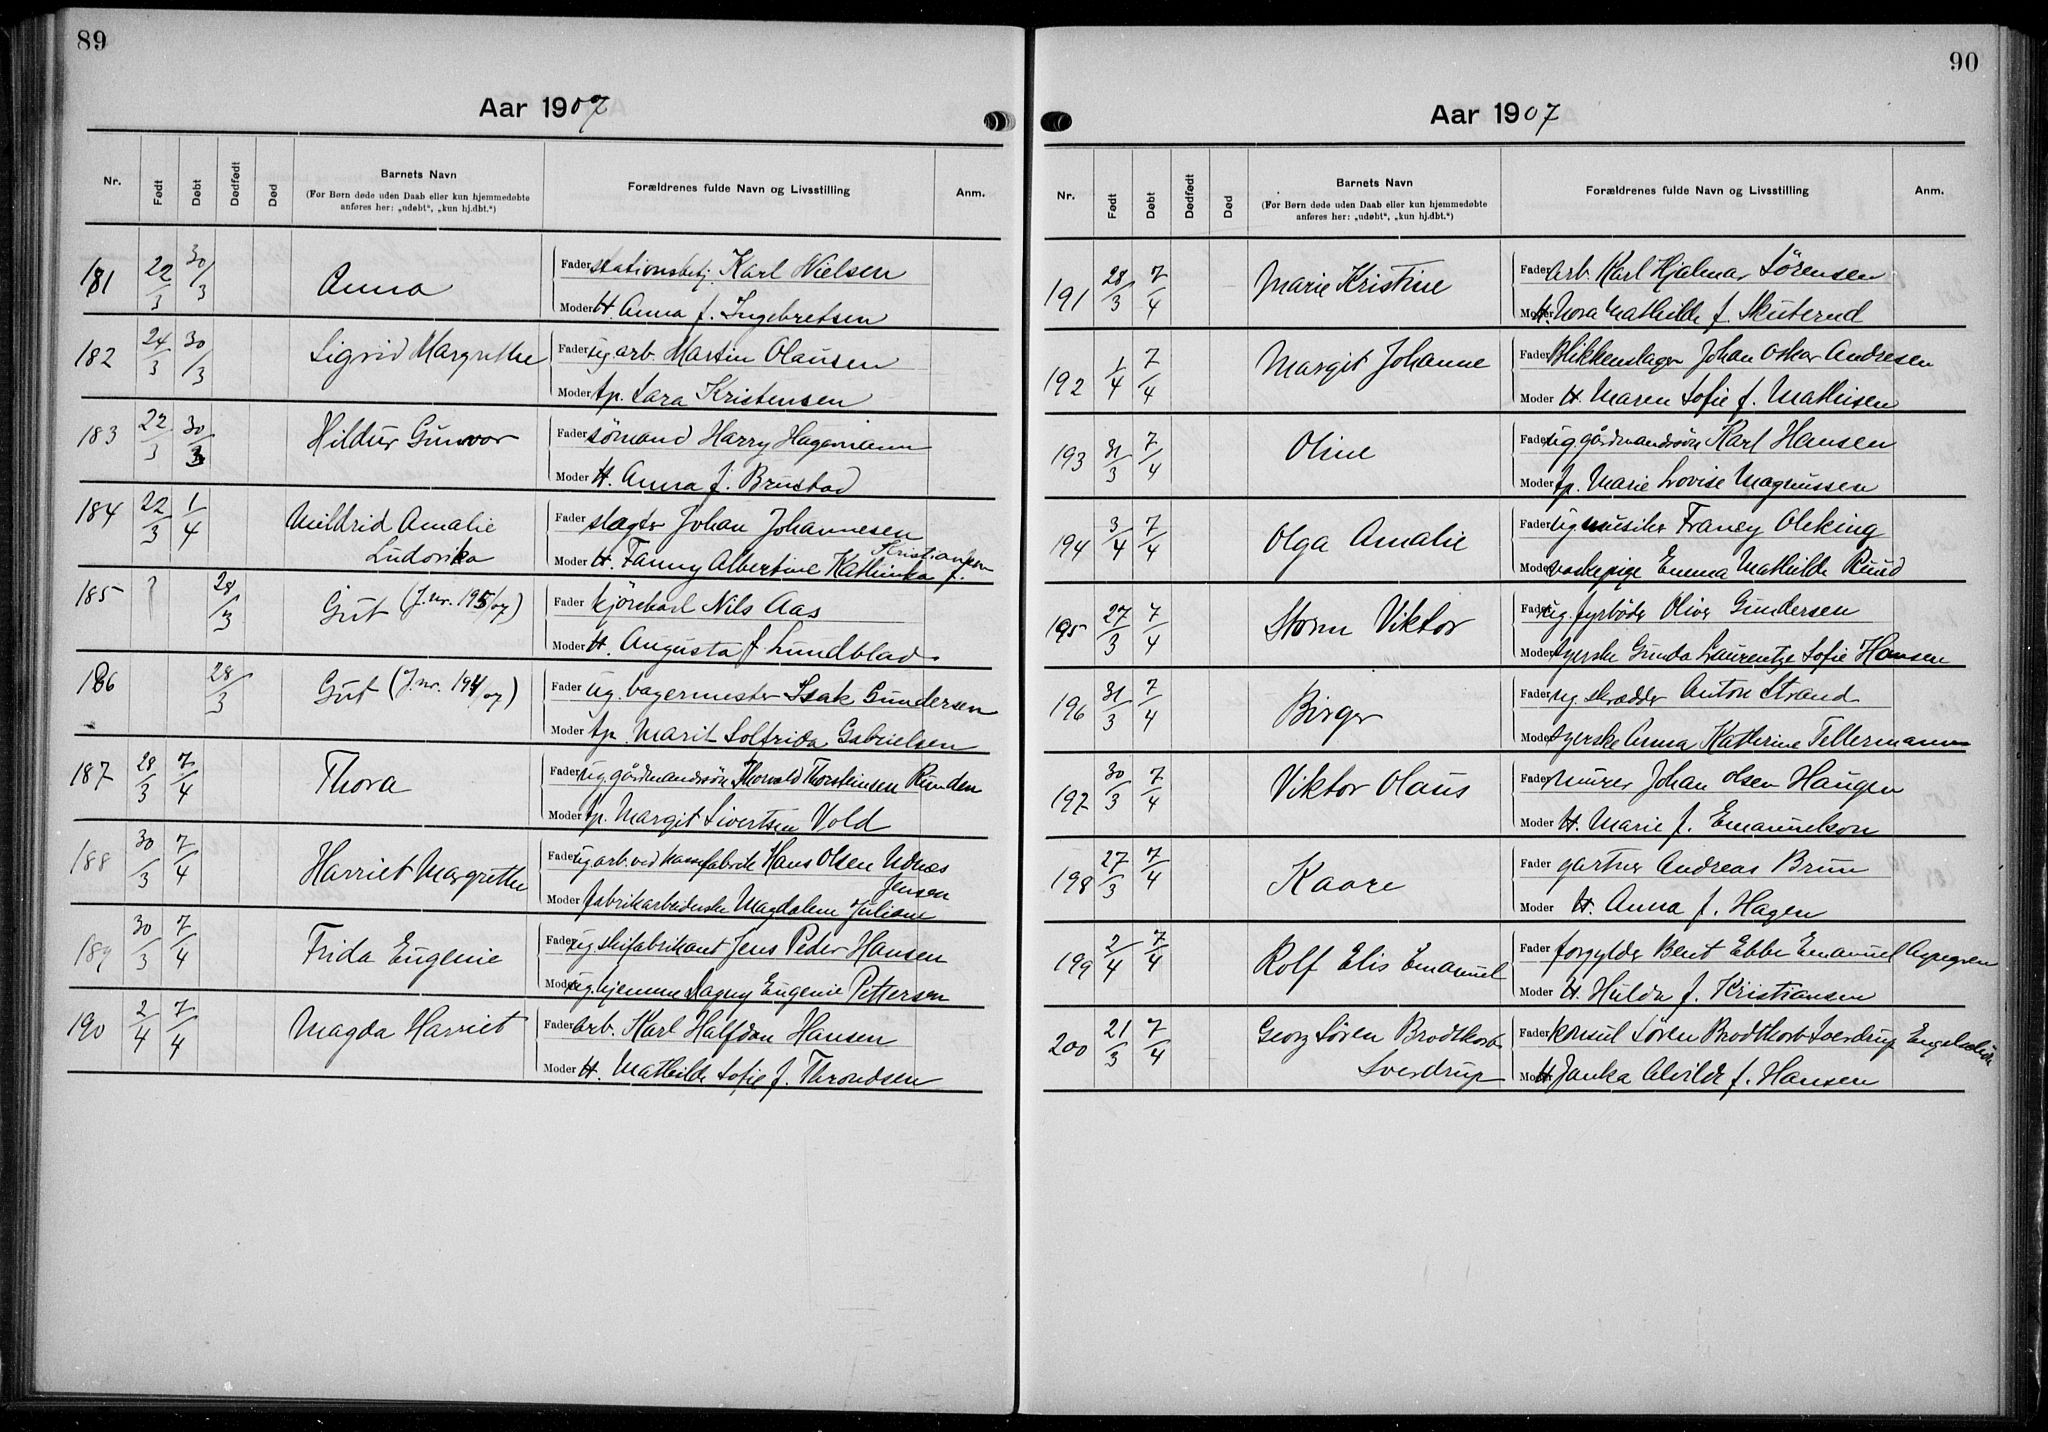 89
Aar 1907
Nr.
Født
Døbt
Dødfødt
Død
Barnets Navn
(For Børn døde uden Daab eller kun hjemmedøbte
anføres her: „udøbt“, „kun hj.dbt.“)
Forældrenes fulde Navn og Livsstilling
Anm.
181 22/3 30/3 Anna Fader stationsbetj. Karl Nielsen
Moder H. Anna f. Ingebretsen
182 24/3 30/3 Sigrid Margrethe Fader ug. arb. Martin Olausen
Moder tp. Sara Kristensen
183 22/3 30/3 Hildur Gunvor Fader sømand Harry Hagemann
Moder H. Anna f. Brustad
184 22/3 1/4 Mildrid Amalie Fader slagter Johan Johannesen
Kristiansen
Ludovika Moder H. Fanny Albertine Kathinka f.
185 ? 28/3 Gut (J.nr. 195/07) Fader kjørekarl Nils Aas
Moder H. Augusta f. Lundblad
186 28/3 Gut (J.nr. 194/07) Fader ug. bagermester Isak Gundersen
Moder tp. Marit Solfrida Gabrielsen
187 28/3 7/4 Thora Fader ug. gårdmandssøn Thorvald Thorsteinsen Runden
Moder tp. Margit Sivertsen Vold
188 30/3 7/4 Harriet Margrethe Fader ug. arb. ved Hans Olsen Udnæs
Jensen
Moder fabrikarbeiderske Magdalene Juliane
189 30/3 7/4 Frida Eugenie Fader ug. skifabrikant Jens Peder Hansen
Moder ug. hjemme Dagny Eugenie Pettersen
190 2/4 7/4 Magda Harriet Fader arb. Karl Halfdan Hansen
Moder H. Mathilde Sofie f. Throndsen
90
Aar 1907
Nr.
Født
Døbt
Dødfødt
Død
Barnets Navn
(For Børn døde uden Daab eller kun hjemmedøbte
anføres her: „udøbt“, „kun hj.dbt.“)
Forældrenes fulde Navn og Livsstilling
Anm.
191 28/3 7/4 Marie Kristine Fader arb. Karl Hjalmar Sørensen
Moder H. Nora Mathilde f. Skuterud
192 1/4 7/4 Margit Johanne Fader Blikkenslager Johan Oskar Andresen
Moder H. Maren Sofie f. Mathisen
193 31/3 7/4 Oline Fader ug. gårdmandssøn Karl Hansen
Moder tp. Marie Lovise Magnussen
194 3/4 7/4 Olga Amalie Fader ug. musiker
Moder vaskepige Emma Mathilde Ruud
195 27/3 7/4 Storm Viktor Fader ug. fyrbøder Oliver Gundersen
Moder syerske Gunda Laurentze Sofie Hansen
196 31/3 7/4 Birger Fader ug. skrædder Anton Strand
Moder syerske Anna Kathrine Tellermann
197 30/3 7/4 Viktor Olaus Fader murer Johan Olsen Haugen
Moder H. Marie f. Emanuelson
198 27/3 7/4 Kaare Fader gartner Andreas Brun
Moder H. Anna f. Hagen
199 2/4 7/4 Rolf Elis Emanuel Fader forgylder Bent Ebbe Emanuel
Moder H. Hulda f. Kristiansen
200 21/3 7/4 Georg Søren Brodtkorb Fader konsul Søren Brodtkorb Sverdrup
Sverdrup Moder H. Janka Alvilde f. Hansen